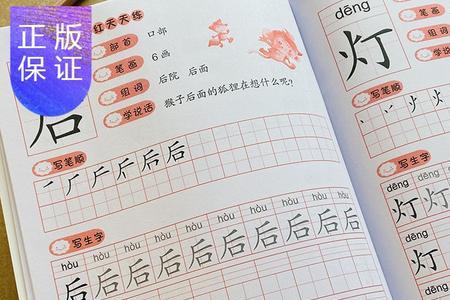 正版
保证
红天天练
部首 口部
笔画 6画
组词 后院 后面
学说话 猴子后面的狐狸在想什么呢?
后
写笔顺
后后
写生字
hòu hòu hòu hòu hòu hòu hòu hòu hòu
后后后后后后后后后
hòu
后
dēng
灯
写笔顺
写生字
dēng dēng
灯灯
dēng
灯